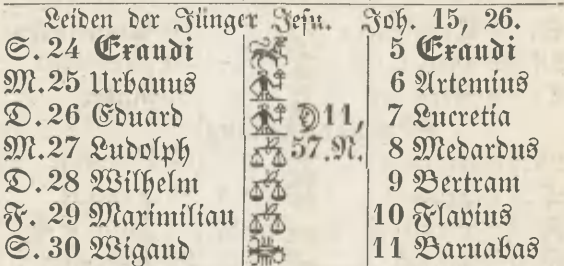 Leiden der Jünger Jesu. Joh. 15, 26.
S. 24 Exaudi 5 Exaudi
M. 25 Urbanus 6 Artemius
D. 26 Eduard 11, 7 Lucretia
M. 27 Ludolph 57. N. 8 Medardus
D. 28 Wilhelm 9 Bertram
F. 29 Maximilian 10 Flavius
S. 30 Wigand 11 Barnabas